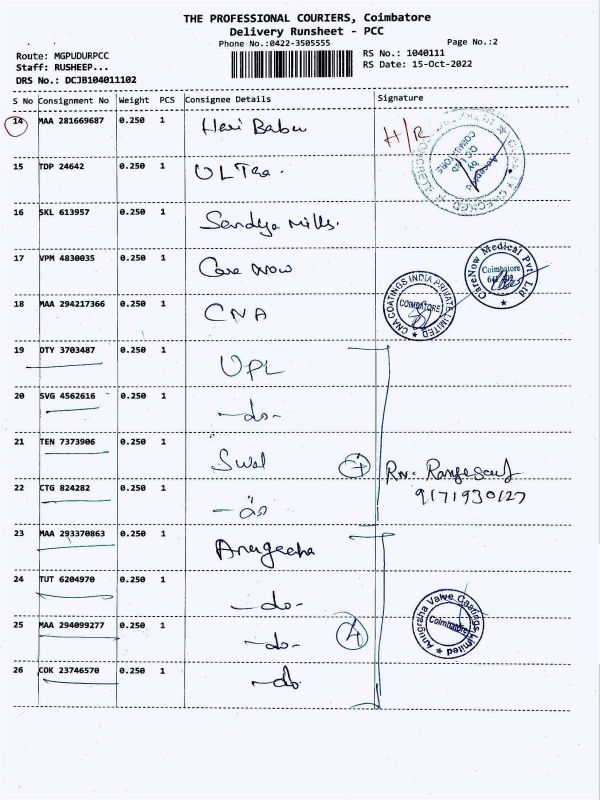 THE PROFESSIONAL COURIERS, Coimbatore
Delivery Runsheet - PCC
Phone No.:0422-3505555 Page No.:2
Route: MGPUDURPCC RS No.: 1040111
Staff: RUSHEEP... RS Date: 15-Oct-2022
DRS No.: DCJB104011102
S No Consignment No Weight PCS Consignee Details Signature
14 MAA 281669687 0.250 1 Hari Babu H/R
15 TDP 24642 0.250 1 ULTra.
16 SKL 613957 0.250 1 Sandya Mills.
17 VPM 4830035 0.250 1 Care Now
CareNow Medical Pvt. Ltd
Coimbatore
18 MAA 294217366 0.250 1 CNA
CNA COATINGS INDIA PRIVATE LIMITED
COIMBATORE
19 DTY 3703487 0.250 1 UPL
20 SVG 4562616 0.250 1 -do-
21 TEN 7373906 0.250 1 Swal
22 CTG 824282 0.250 1 -do 9171930127
23 MAA 293370863 0.250 1
24 TUT 6204970 0.250 1 -do-
25 MAA 294099277 0.250 1 -do- 4
Anugraha Valve Castings Limited
Coimbatore
26 COK 23746570 0.250 1 -do